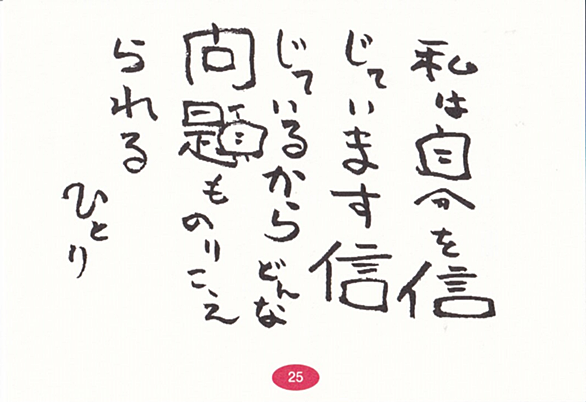 私は自分を信
じています信
じているからどんな
問題ものりこえ
られる
ひとり
25